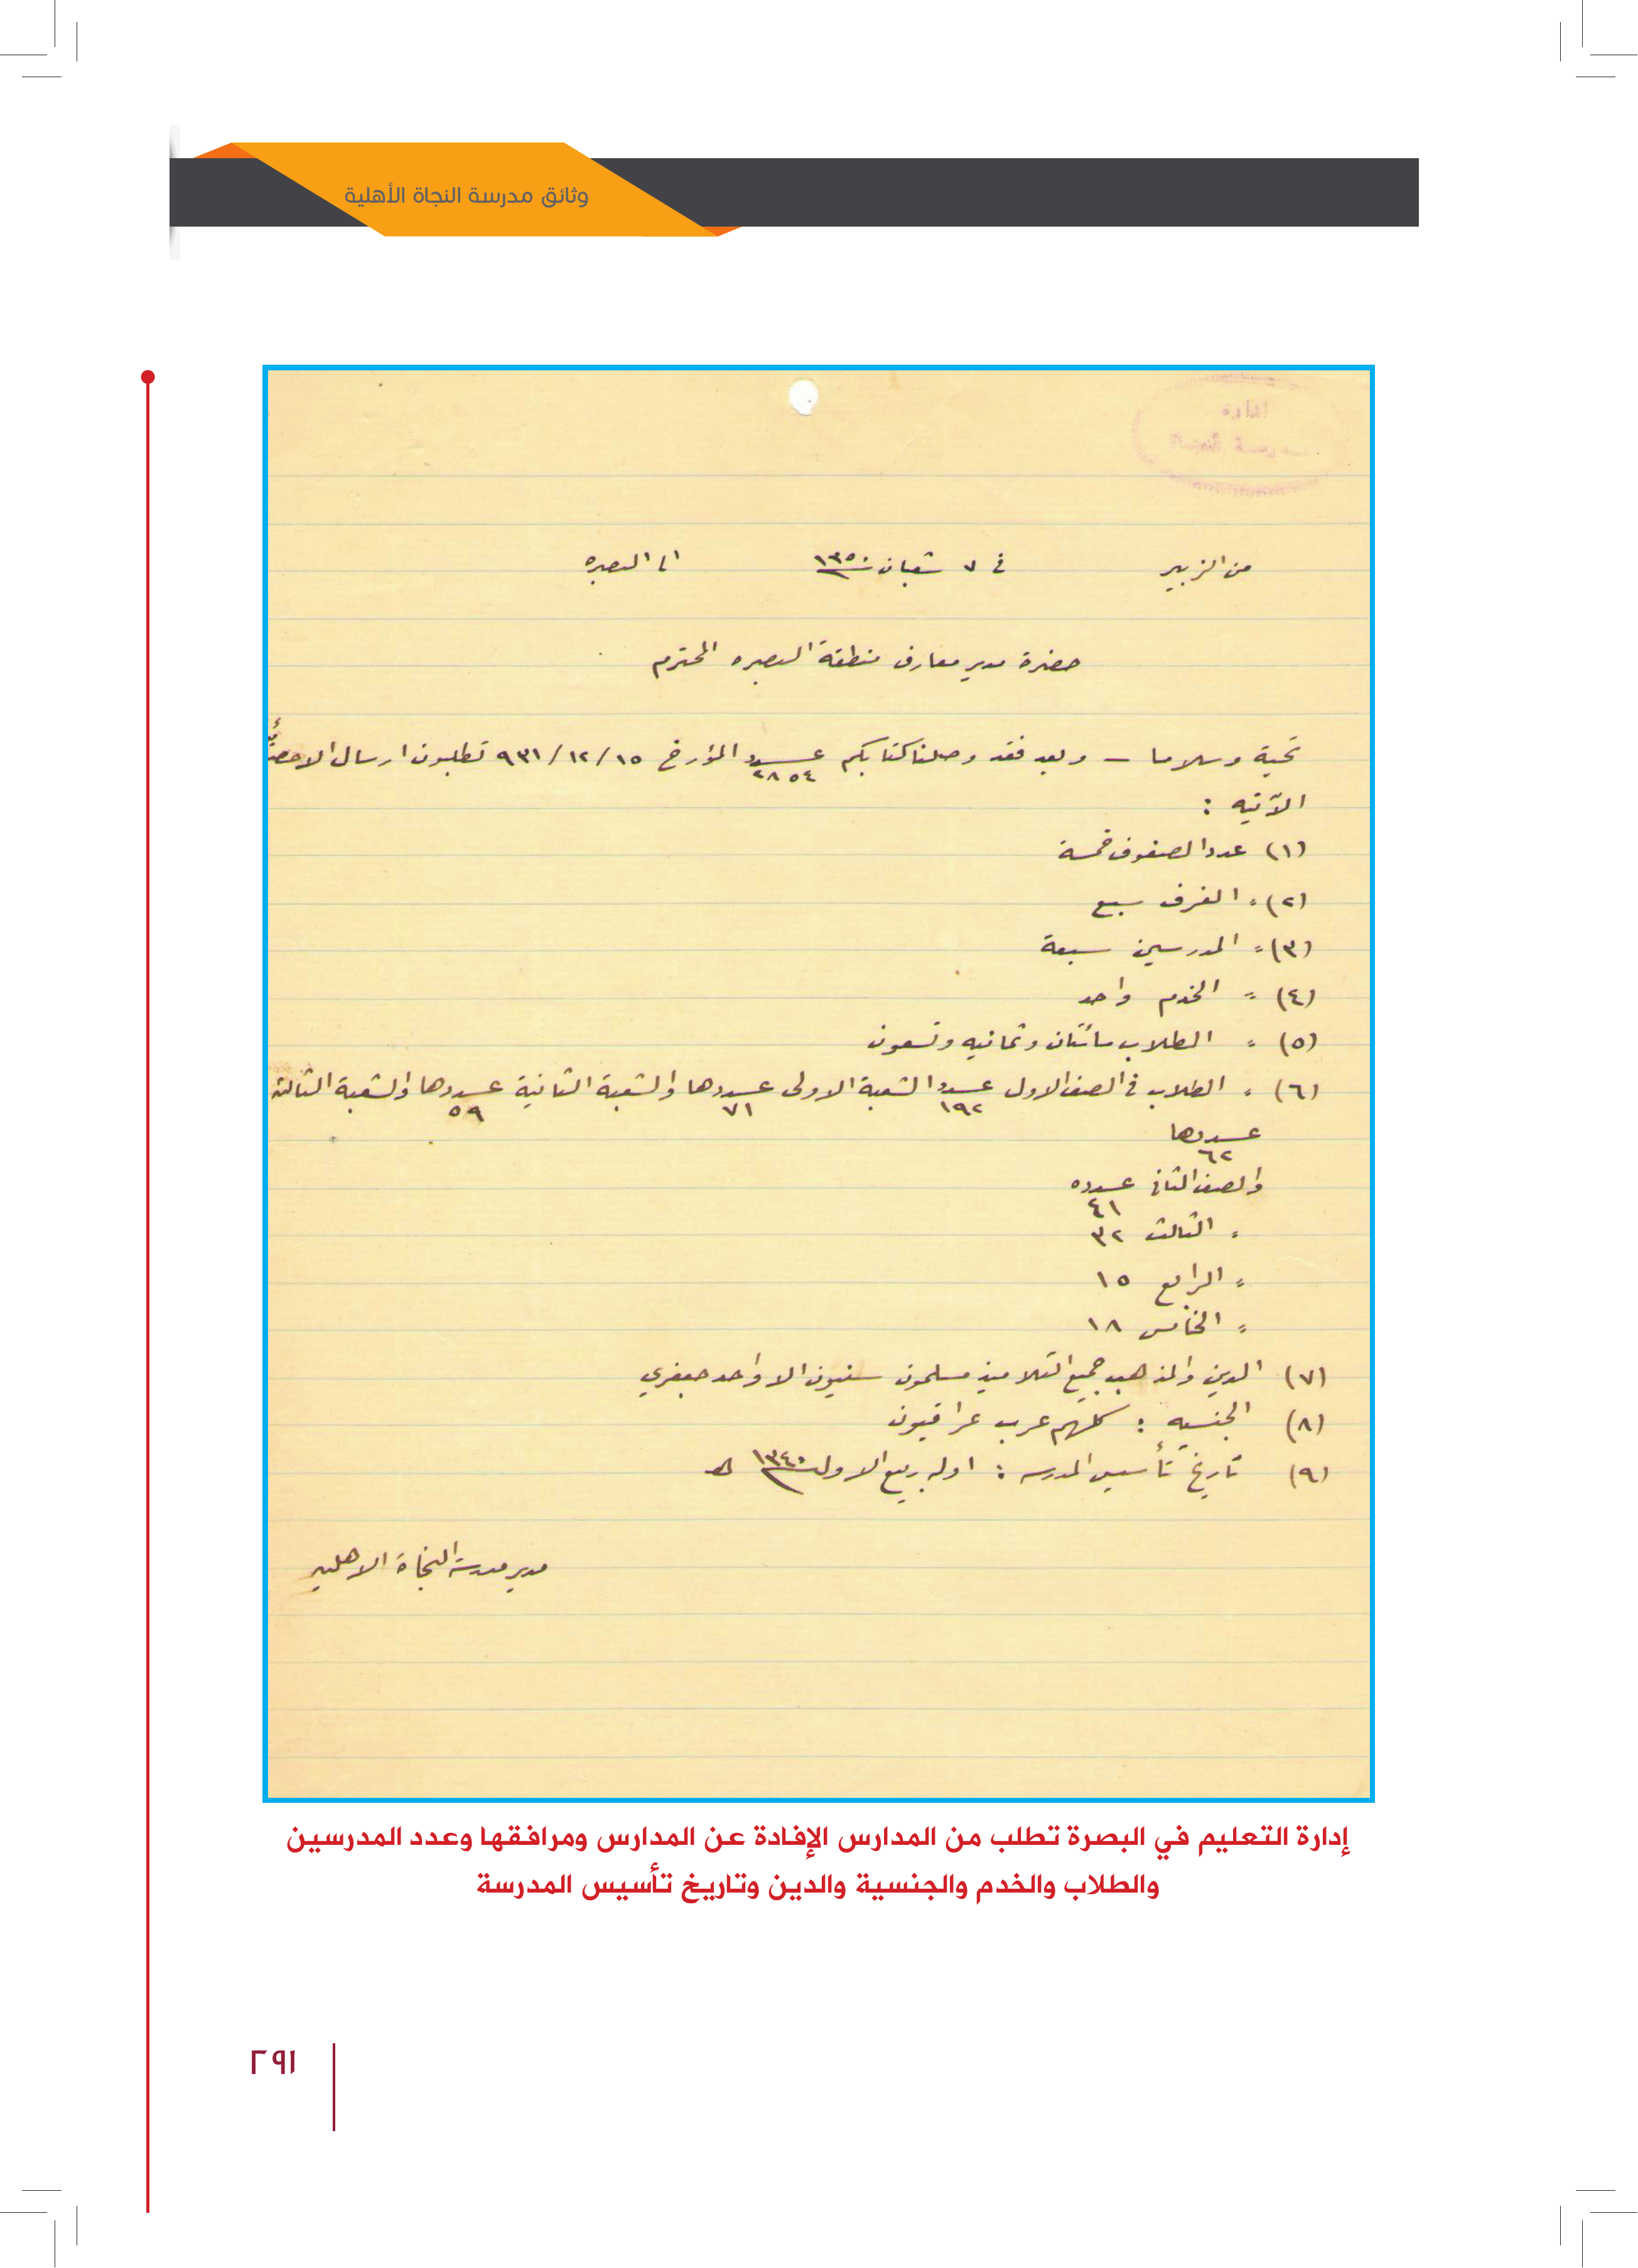 وثائق مدرسة النجاة الأهلية
ادارة
مدرسة النجاة
من الزبير في ٧ شعبان سنة ١٣٥٠ الى البصره
حضرة مدير معارف منطقة البصره المحترم
تحية وسلاما — وبعد فقد وصلنا كتابكم عـــدد ٢٨٥٤ المؤرخ ١٥/١٢/٩٣١ تطلبون ارسال الاحصائية
الآتيه :
(١) عدد الصفوف خمسة
(٢) = الغرف سبع
(٣) = المدرسين سبعة
(٤) = الخدم واحد
(٥) = الطلاب مائتان وثمانيه وتسعون
(٦) = الطلاب في الصف الاول عـــدد ١٩٢ الشعبة الاولى عـــددها ٧١ والشعبة الثانية عـــددها ٥٩ والشعبة الثالثة
عـــددها ٦٢
والصف الثاني عـــدده ٤١
= الثالث ٣٢
= الرابع ١٥
= الخامس ١٨
(٧) الدين والمذهب جميع التلاميذ مسلمون سنيون الا واحد جعفري
(٨) الجنسيه : كلهم عرب عراقيون
(٩) تاريخ تأسيس المدرسه : اول ربيع الاول سنة ١٣٤٠ هـ
مدير مدرسة النجاة الاهليه
إدارة التعليم في البصرة تطلب من المدارس الإفادة عن المدارس ومرافقها وعدد المدرسين
والطلاب والخدم والجنسية والدين وتاريخ تأسيس المدرسة
٢٩١